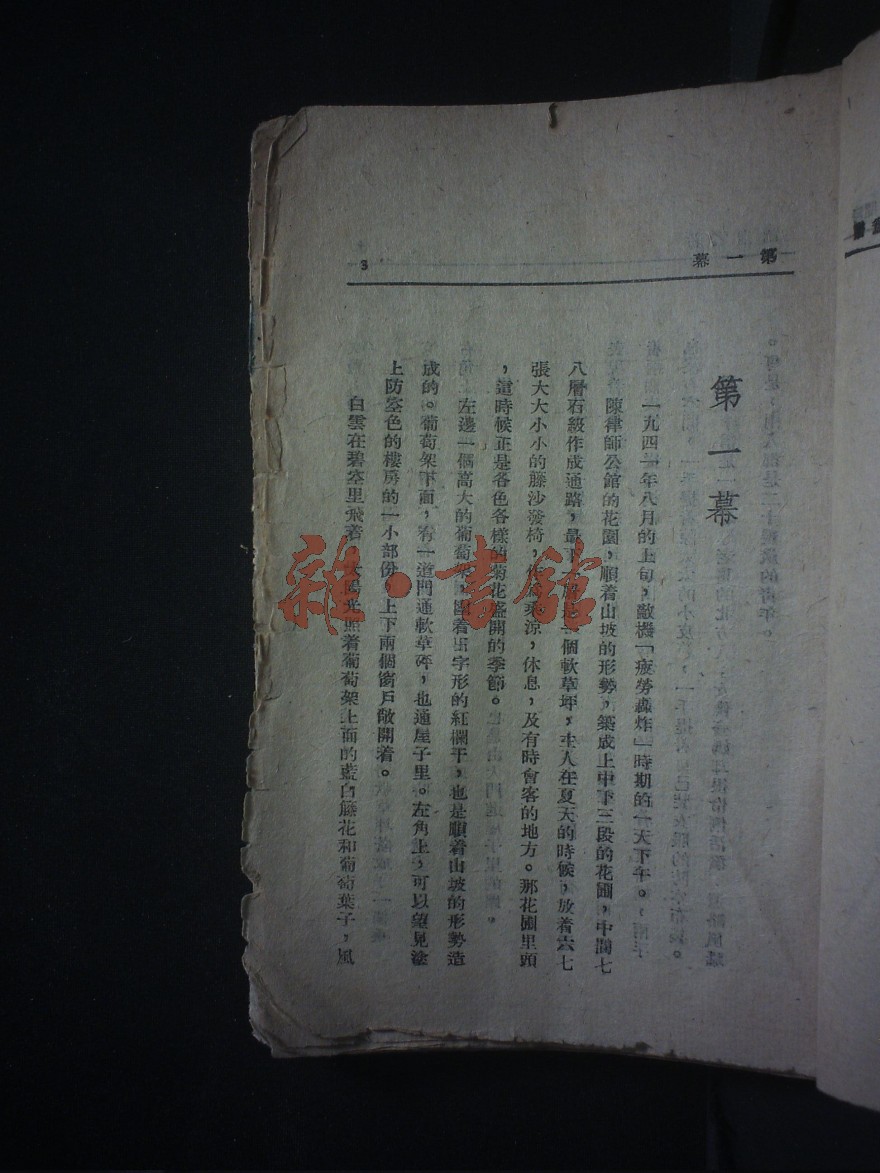 第一幕
3
第一幕
一九四一年八月的上旬，敵機「疲勞轟炸」時期的一天下午。
陳律師公館的花園，順着山坡的形勢，築成上中下三段的花圃，中間七
八層石級作成通路，最下 個軟草坪，主人在夏天的時候，放着六七
張大大小小的藤沙發椅，作爲乘涼，休息，及有時會客的地方。那花圃里頭
，這時候正是各色各樣的菊花盛開的季節。
左邊一個高大的葡萄架，圍着 字形的紅欄干，也是順着山坡的形勢造
成的。葡萄架下面，有一道門通軟草坪，也通屋子里。左角上，可以望見塗
上防空色的樓房的一小部份，上下兩個窗戶敞開着。
白雲在碧空里飛着，太陽光照着葡萄架上面的藍白籐花和葡萄葉子，風
雜·書館